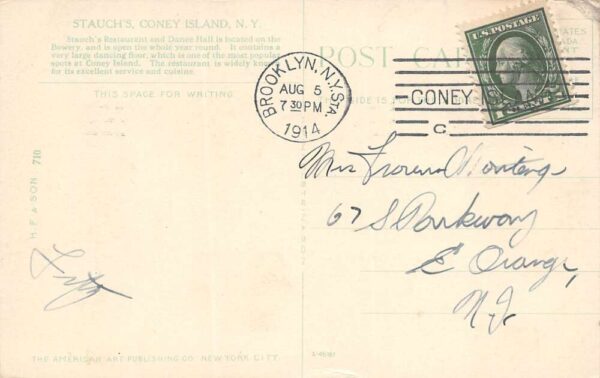 STAUCH'S, CONEY ISLAND, N. Y.
Stauch's Restaurant and Dance Hall is located on the
Bowery, and is open the whole year round. It contains a
very large dancing floor, which is one of the most popular
spots at Coney Island. The restaurant is widely known
for its excellent service and cuisine.
THIS SPACE FOR WRITING
POST CARD
U.S. POSTAGE
1 CENT 1
BROOKLYN, N.Y. STA.
AUG 5
7 30 PM
1914
CONEY
C
SIDE IS
H. F. & SON 710
Mrs
67 S Parkway
E Orange,
N.J.
Fritz
THE AMERICAN ART PUBLISHING CO. NEW YORK CITY